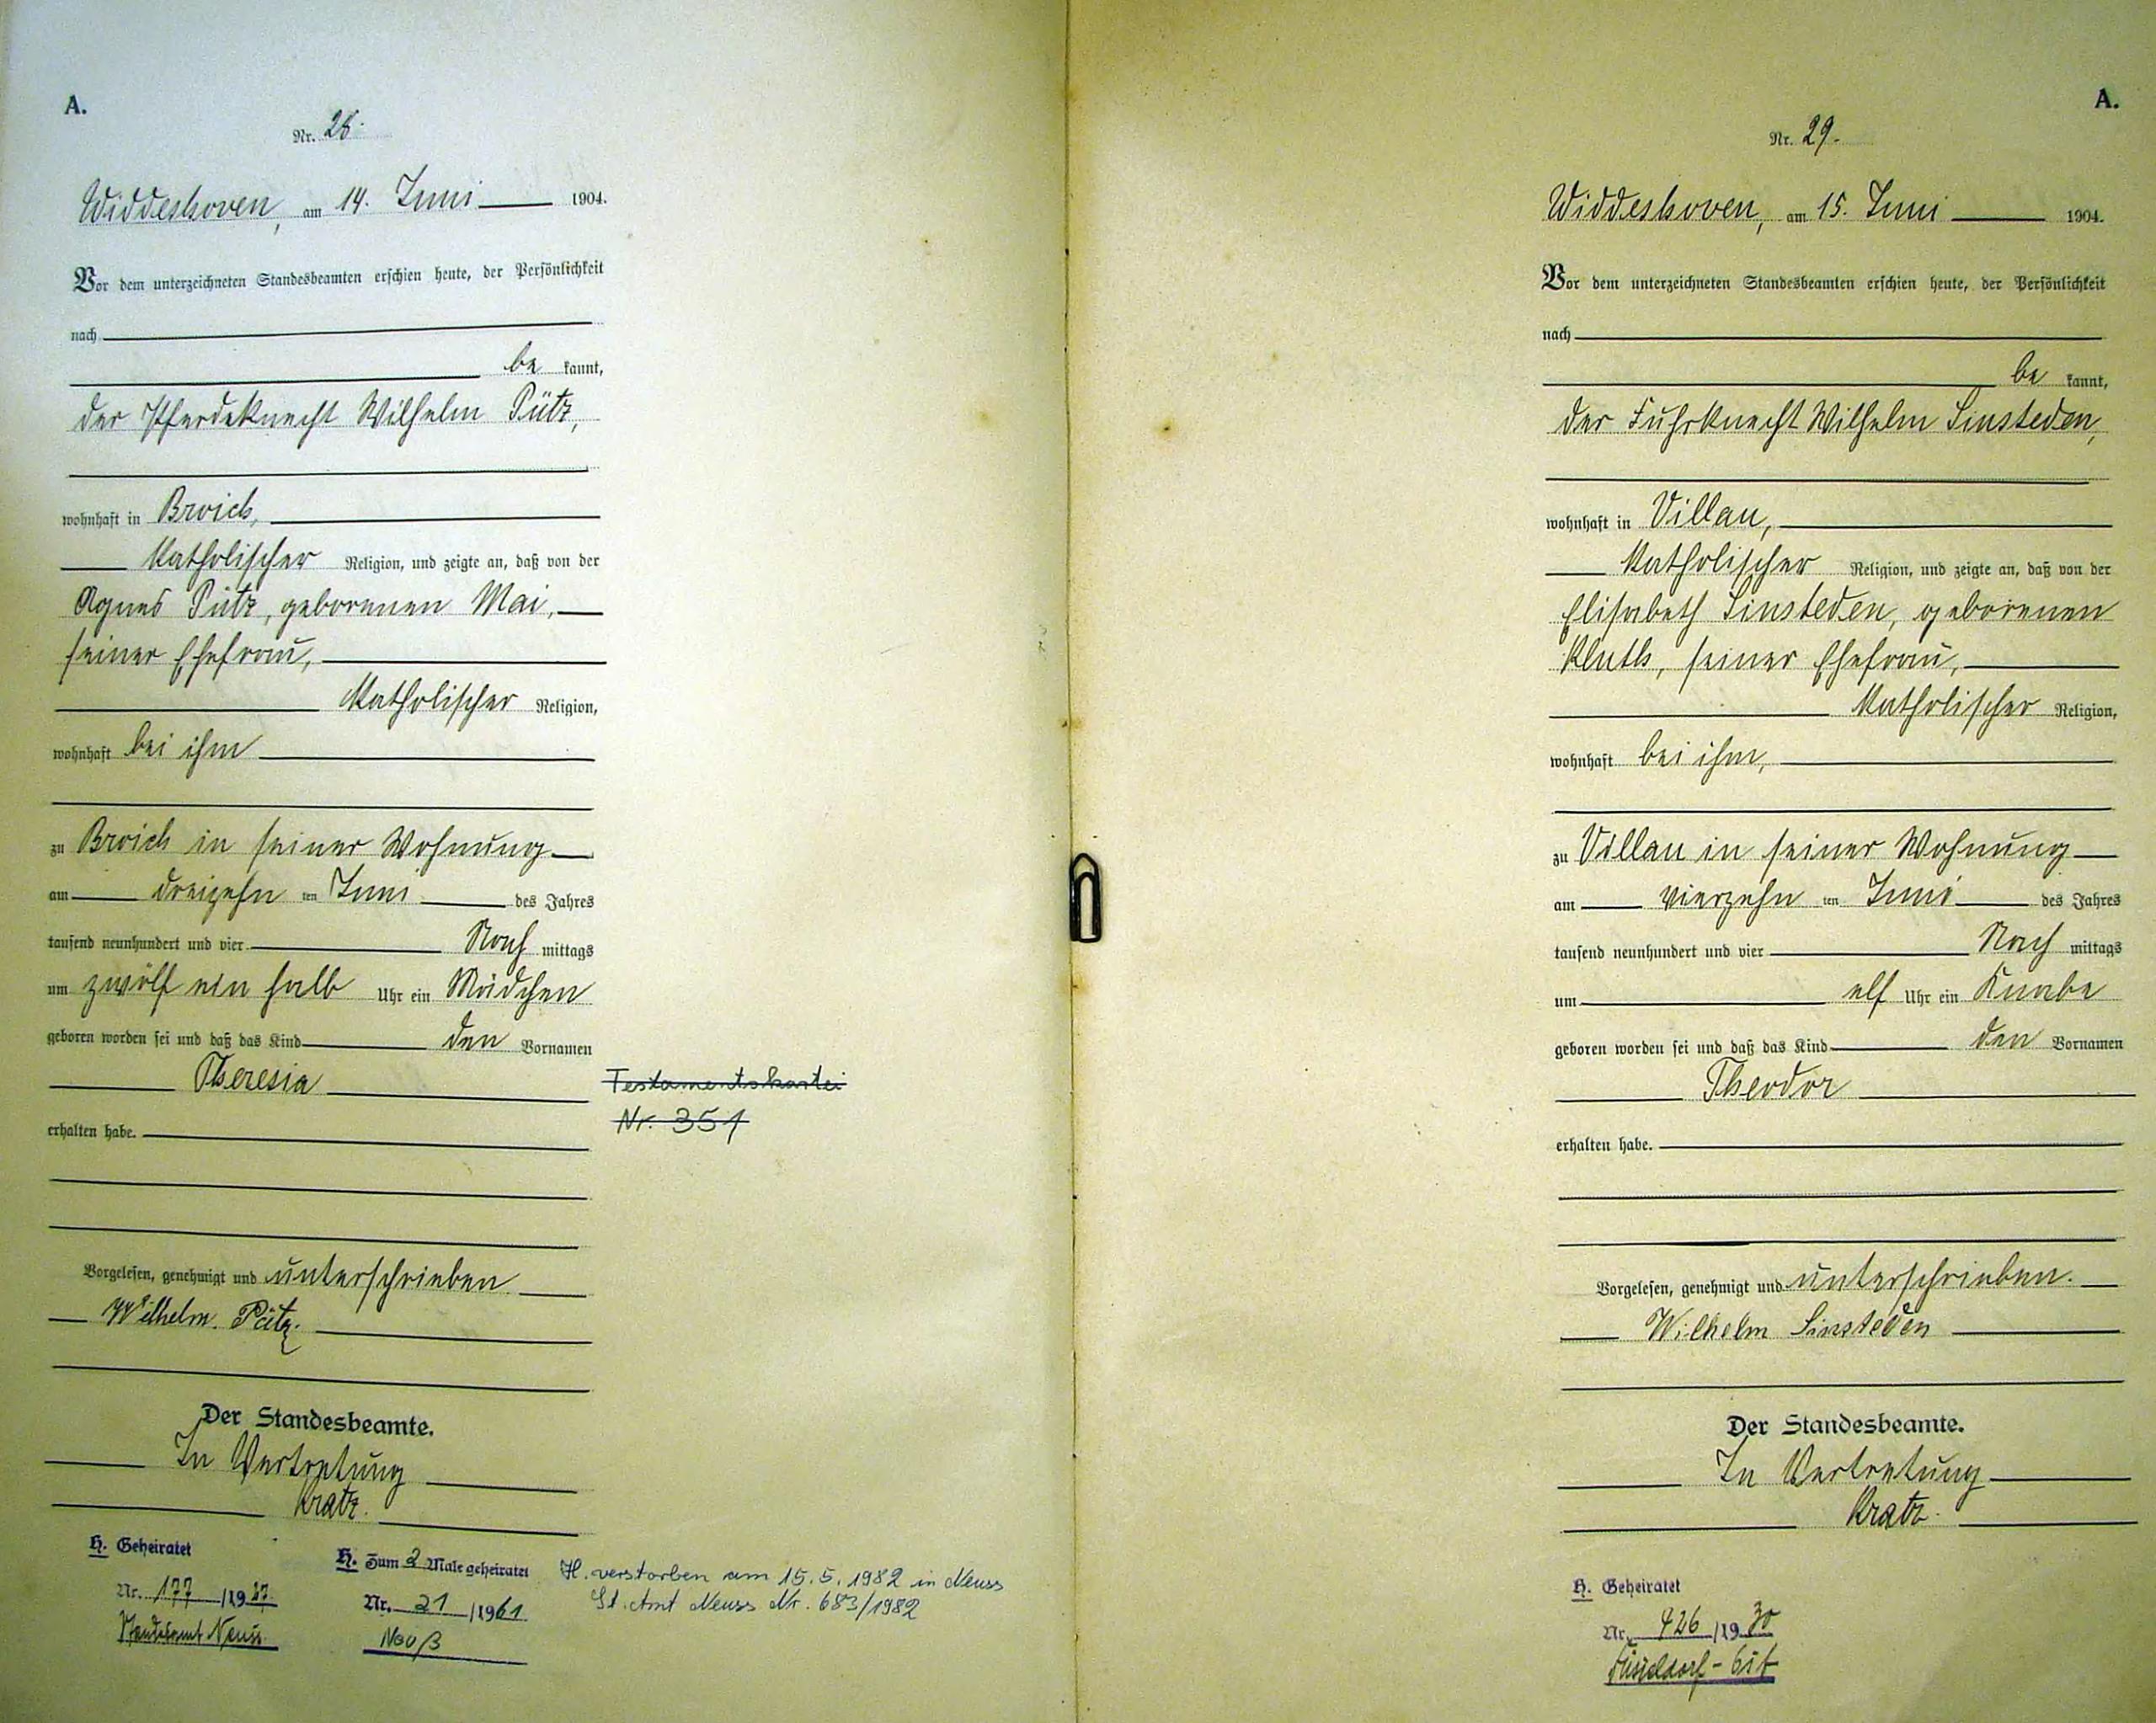 A.
Nr. 28.
Widdeshoven, am 14. Juni 1904.
Vor dem unterzeichneten Standesbeamten erschien heute, der Persönlichkeit
nach
be kannt,
der Pferdeknecht Wilhelm Pütz,
wohnhaft in Broich,
katholischer Religion, und zeigte an, daß von der
Agnes Pütz, geborenen Mai,
seiner Ehefrau,
katholischer Religion,
wohnhaft bei ihm
zu Broich in seiner Wohnung
am dreizehn ten Juni des Jahres
tausend neunhundert und vier Nach mittags
um zwölf ein halb Uhr ein Mädchen
geboren worden sei und daß das Kind den Vornamen
Theresia
erhalten habe.
Testamentskartei
Nr. 351
Vorgelesen, genehmigt und unterschrieben
Wilhelm. Pütz.
Der Standesbeamte.
In Vertretung
Kratz.
H. Geheiratet
Nr. 177 /19
Standesamt Neuss
H. Zum 2 Male geheiratet
Nr. 21 /1961
Neuß
H. verstorben am 15.5.1982 in Neuss
St. Amt Neuss Nr. 683/1982
A.
Nr. 29.
Widdeshoven, am 15. Juni 1904.
Vor dem unterzeichneten Standesbeamten erschien heute, der Persönlichkeit
nach
be kannt,
der Fuhrknecht Wilhelm Sinsteden,
wohnhaft in Villau,
katholischer Religion, und zeigte an, daß von der
Elisabeth Sinsteden, geborenen
Kluth, seiner Ehefrau,
katholischer Religion,
wohnhaft bei ihm,
zu Villau in seiner Wohnung
am vierzehn ten Juni des Jahres
tausend neunhundert und vier Nach mittags
um elf Uhr ein Knabe
geboren worden sei und daß das Kind den Vornamen
Theodor
erhalten habe.
Vorgelesen, genehmigt und unterschrieben.
Wilhelm Sinsteden
Der Standesbeamte.
In Vertretung
Kratz.
H. Geheiratet
Nr. 426 /1930
Düsseldorf-